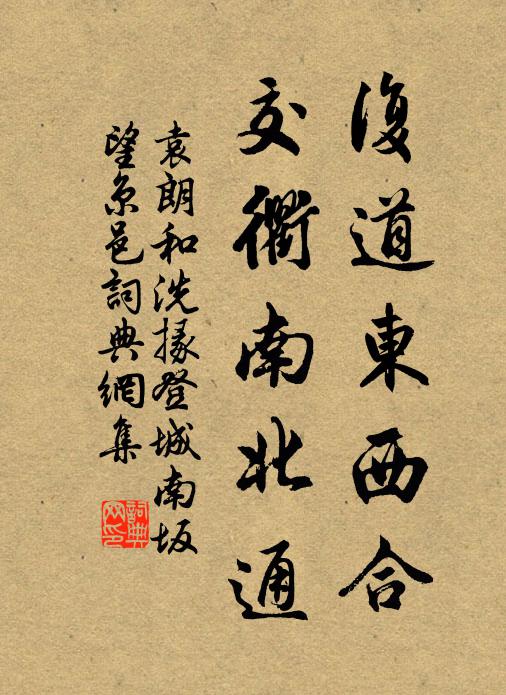 復道東西合
交衢南北通
袁朗和洗掾登城南坂
望京邑詞典網集
詞典網印